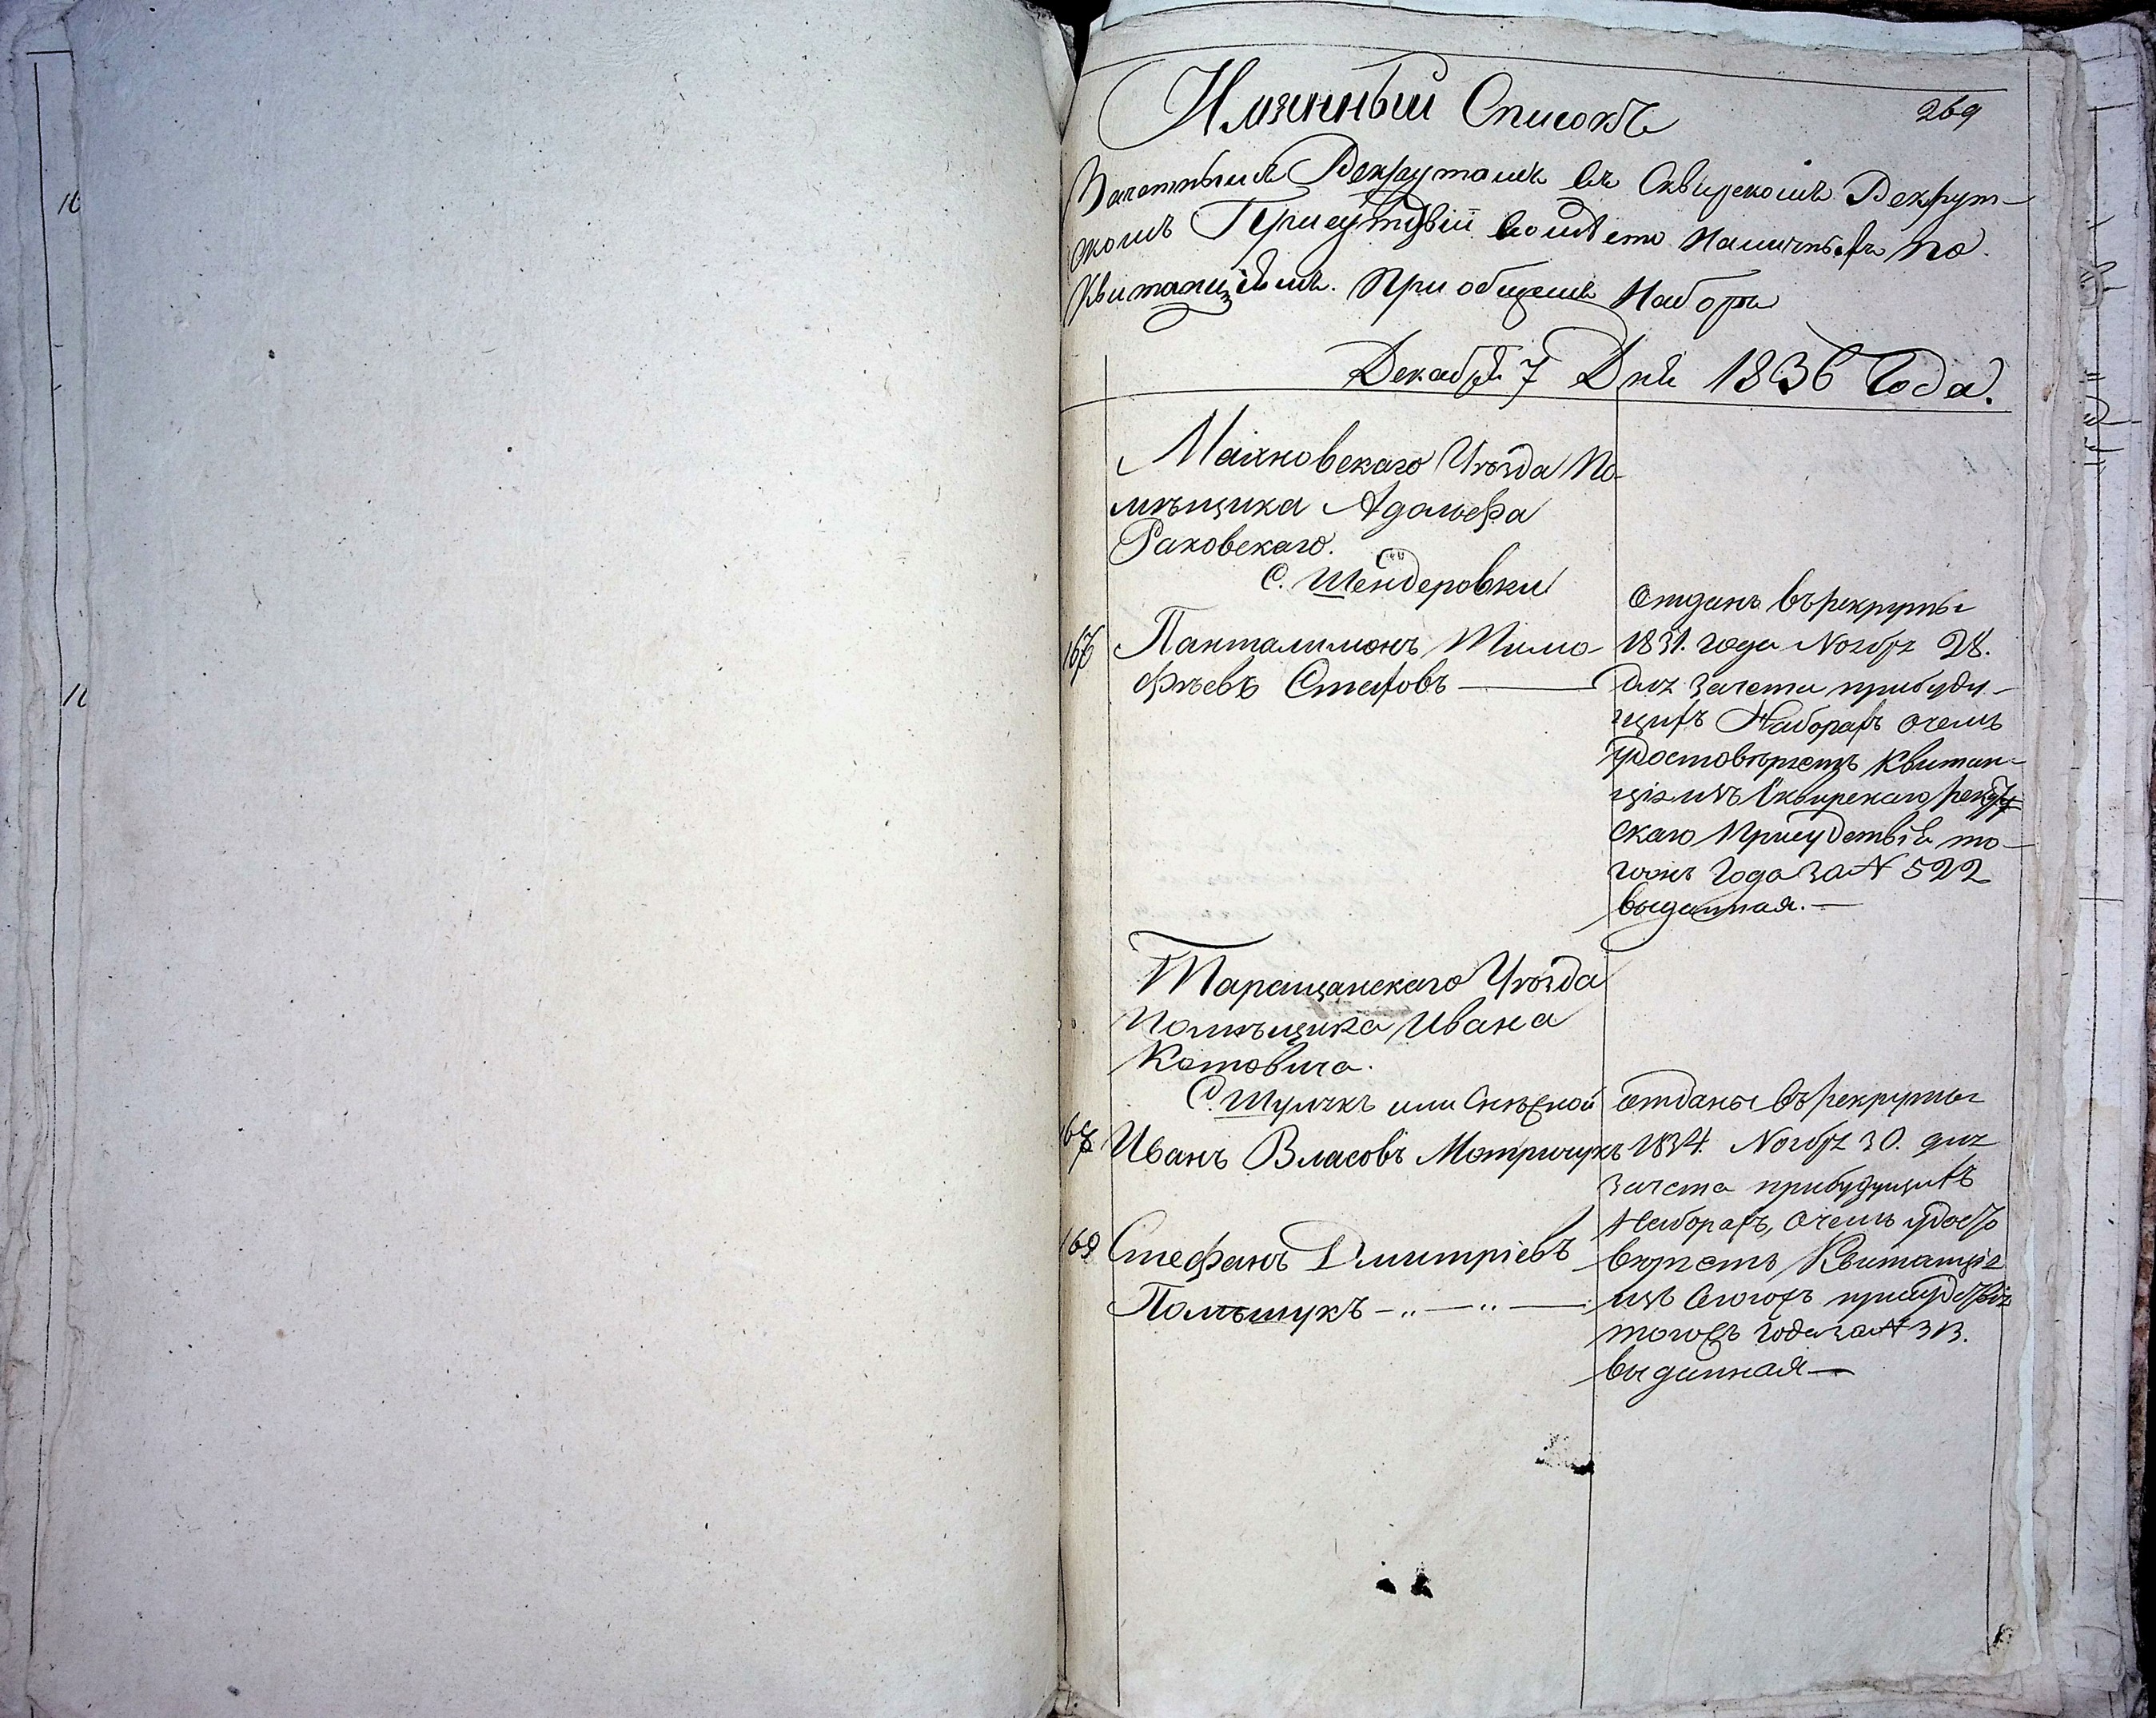 Имянный Списокъ
269
Зачетнымъ Рекрутамъ въ Сквирскомъ Рекрут-
скомъ Присутствіи вомѣсто Наличныхъ по
Квитанціямъ. При общемъ Наборѣ
Декабря 7 Дня 1836 Года.
Махновскаго Уѣзда По-
мѣщика Адольфа
Раковскаго.
С. Шендеровки
167 Панталимонъ Тимо-
фѣевъ Стаховъ —
отданъ въ рекруты
1831. года Ноября 28.
для зачета прибуду-
щихъ Наборахъ очемъ
удостовѣряетъ Квитан-
ція изъ Сквирскаго рекрут
скаго Присудствія то-
гожъ Года за N 522
выданная. —
Таращанскаго Уѣзда
Помѣщика Ивана
Котовича.
С. Шулякъ или Снѣжной
168 Иванъ Власовъ Мотричукъ
169 Стефанъ Дмитріевъ
Полѣшукъ — „ — „ —
отданы въ рекруты
1834. Ноября 30. для
зачета прибудущихъ
Наборахъ, очемъ удосто
вѣряетъ Квитанція
изъ Сегожъ присудствія
тогожъ года за N 313.
выданная —